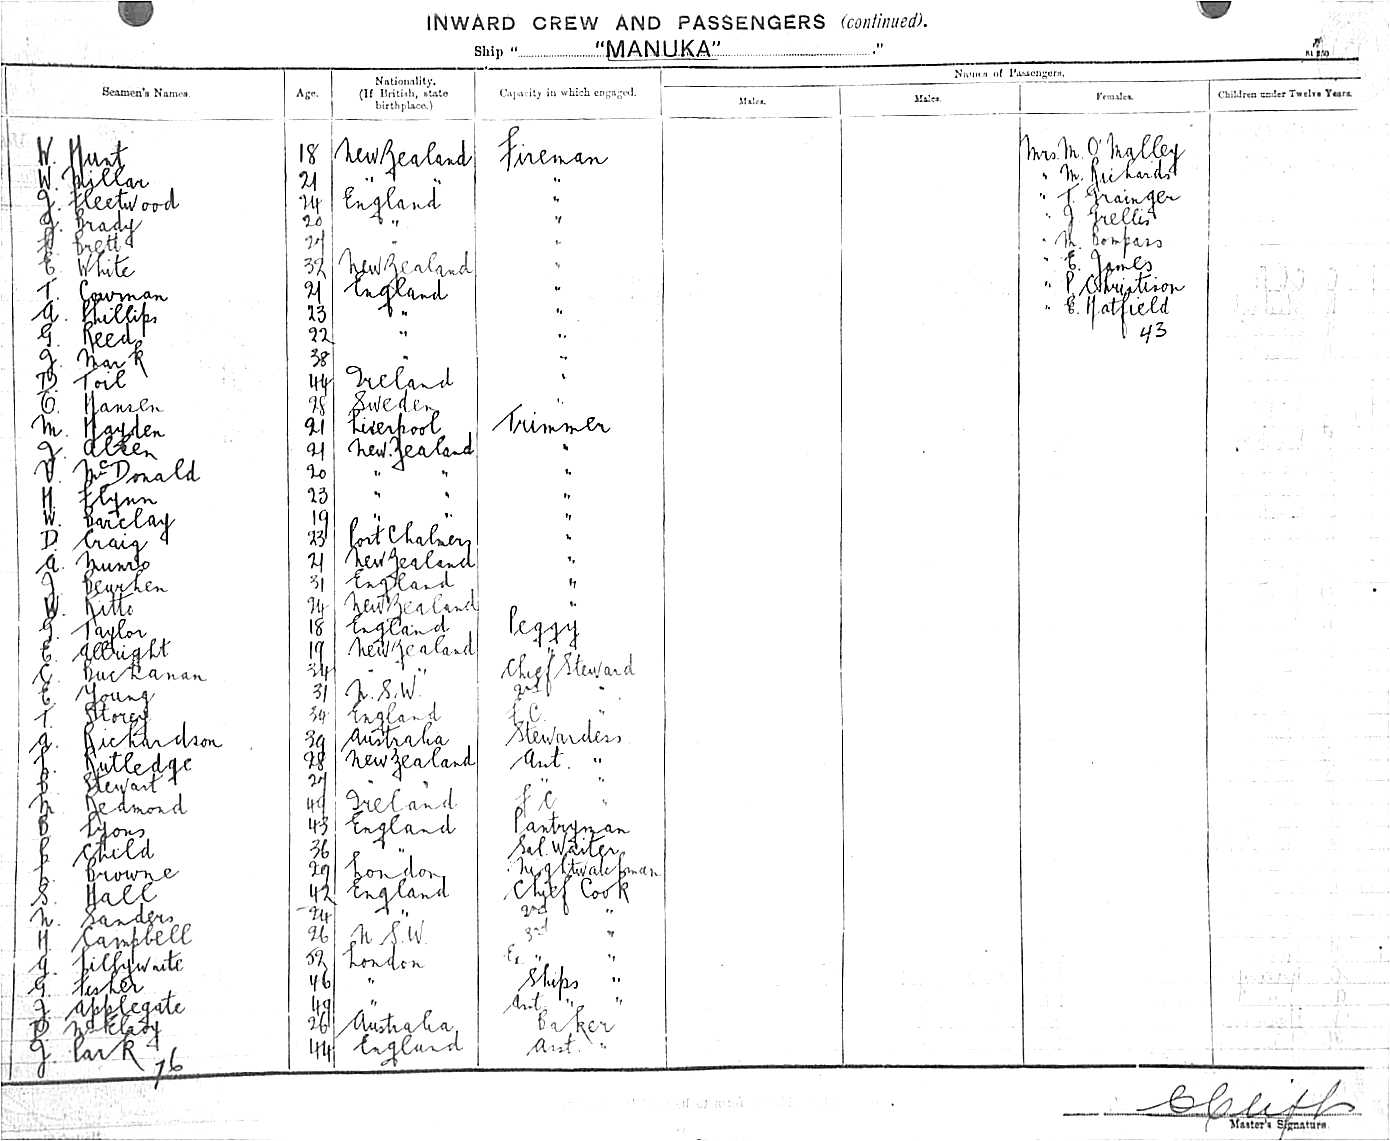 INWARD CREW AND PASSENGERS (continued).
Ship " "MANUKA" ."
Names of Passengers.
Seamen's Names. Age. Nationality. (If British, state birthplace.) Capacity in which engaged. Males. Males. Females. Children under Twelve Years.
W. Hunt 18 New Zealand Fireman Mrs. M. O'Malley
W. Millar 21 " " " " M. Richards
J. Fleetwood 24 England " " T. Grainger
J. Brady 20 " " " J Grellis
Brett 27 " " " M. Bompass
E. White 32 New Zealand " " E. James
T. Cowman 21 England " " P. Christison
A. Phillips 23 " " " E. Hatfield
G. Reed 22 " " 43
J. Mark 38 " "
D. Toil 44 Ireland "
O. Hansen 28 Sweden "
M. Hayden 21 Liverpool Trimmer
J. Allen 21 New Zealand "
V. McDonald 20 " " "
H. Flynn 23 " " "
W. Barclay 19 " " "
D. Craig 23 Port Chalmers "
A. Munro 21 New Zealand "
J. 31 England "
W. Kitto 24 New Zealand "
G. Taylor 18 England Peggy
E. Allright 19 New Zealand "
C. Buchanan 34 " " Chief Steward
E. Young 31 N.S.W. 2nd "
T. Storey 34 England f.C. "
A. Richardson 39 Australia Stewardess
L. Rutledge 28 New Zealand Ast. "
B. Stewart 27 " " " "
M. Redmond 49 Ireland f C "
B. Lyons 43 England Pantryman
L. Child 36 " Sal. Waiter
L. Browne 29 London Nightwatchman
S. Hall 42 England Chief Cook
N. Sanders 24 " 2nd "
H. Campbell 26 N.S.W. 3rd "
G. Lillywhite 52 London Ex " "
G. Fisher 46 " Ships "
J. Applegate 49 " Ast. " "
26 Australia Baker
J. Park 44 England Asst. "
76
Master's Signature.